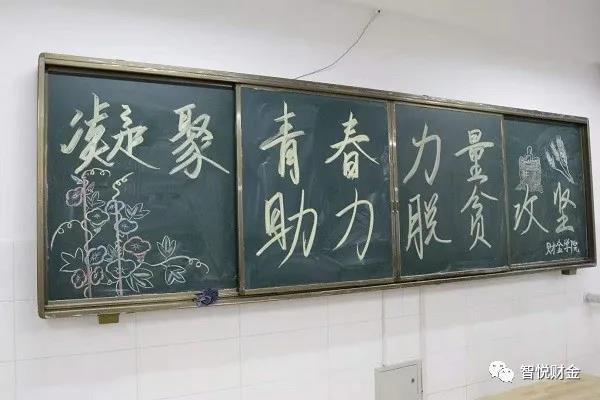 凝聚青春力量
助力脱贫攻坚
财金学院
智悦财金